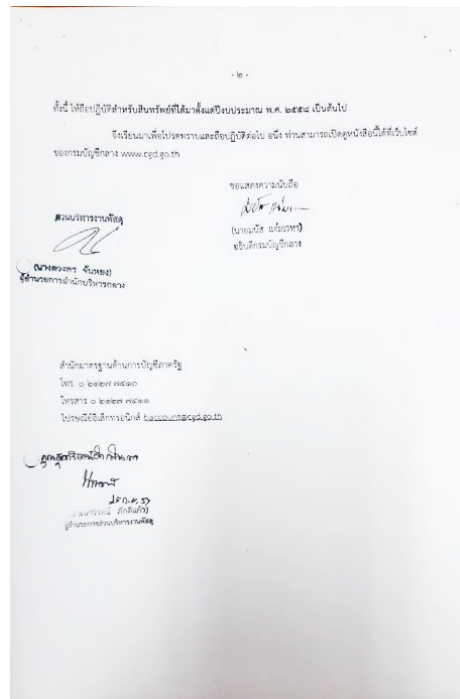 - ๒ -
ทั้งนี้ ให้ถือปฏิบัติสำหรับสินทรัพย์ที่ได้มาตั้งแต่ปีงบประมาณ พ.ศ. ๒๕๕๘ เป็นต้นไป
จึงเรียนมาเพื่อโปรดทราบและถือปฏิบัติต่อไป อนึ่ง ท่านสามารถเปิดดูหนังสือนี้ได้ที่เว็บไซต์
ของกรมบัญชีกลาง www.cgd.go.th
ขอแสดงความนับถือ
(นายมนัส แจ่มเวหา)
อธิบดีกรมบัญชีกลาง
ส่วนบริหารงานพัสดุ
(นางดวงพร จันทยง)
ผู้อำนวยการสำนักบริหารกลาง
สำนักมาตรฐานด้านการบัญชีภาครัฐ
โทร. ๐ ๒๑๒๗ ๗๔๑๐
โทรสาร ๐ ๒๑๒๗ ๗๔๑๑
ไปรษณีย์อิเล็กทรอนิกส์ baccount@cgd.go.th
ภักดีแก้ว)
ผู้อำนวยการส่วนบริหารงานพัสดุ